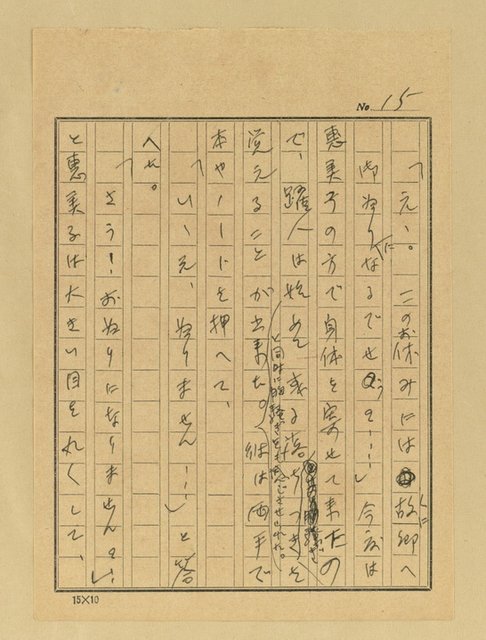 No. 15
「えゝ。このお休みには故郷へ
御帰りになるでせうね……」今度は
恵美子の方で身体を寄せて来たの
で、躍人は始めて或る落ちつきを
覚えることが出来た。彼は両手で
と同時に胸騒ぎを感じさせられた。
本やノートを押へて、
「いゝえ、帰りません……」と答
へた。
「さう！お帰りになりませんの」
と恵美子は大きい目を丸くして、
15×10